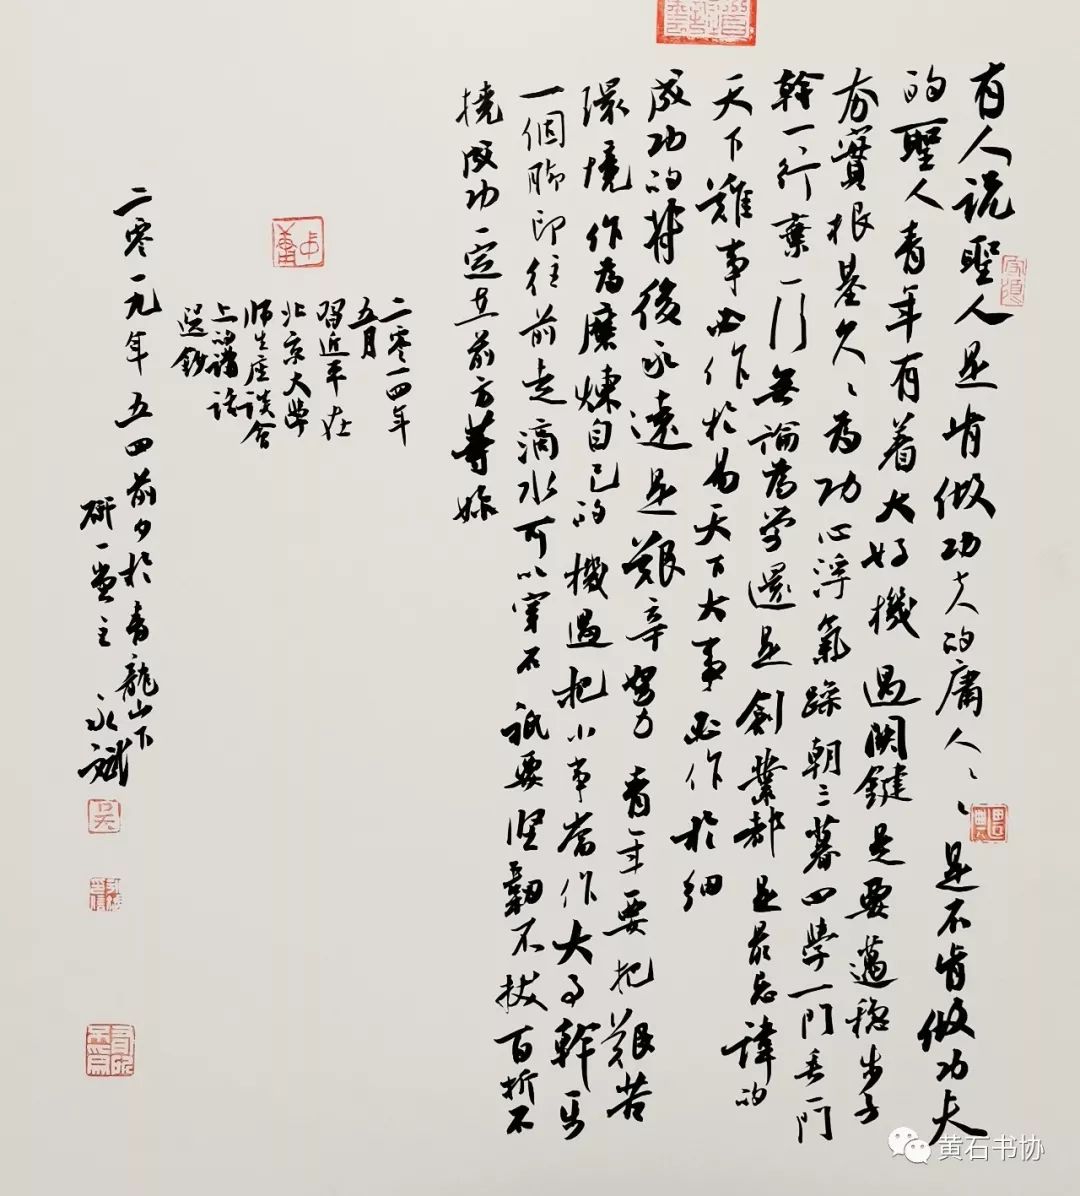 有人说聖人是肯做功夫的庸人〻〻是不肯做功夫
的聖人青年有着大好機遇関鍵是要邁穩步子
夯實根基久〻為功心浮氣躁朝三暮四學一門丢一門
幹一行棄一行無論為学還是創業都是最忌諱的
天下難事必作於易天下大事必作於细
成功的背後永遠是艱辛努力青年要把艱苦
環境作為磨煉自己的機遇把小事當作大事幹一步
一個脚印往前走滴水可以穿石祇要堅韌不拔百折不
撓成功一定在前方等你
二零一四年
五月
習近平在
北京大学
师生座谈会
上的講話
選鈔
二零一九年五四前夕於青龍山下
研一堂主永斌
黄石书协